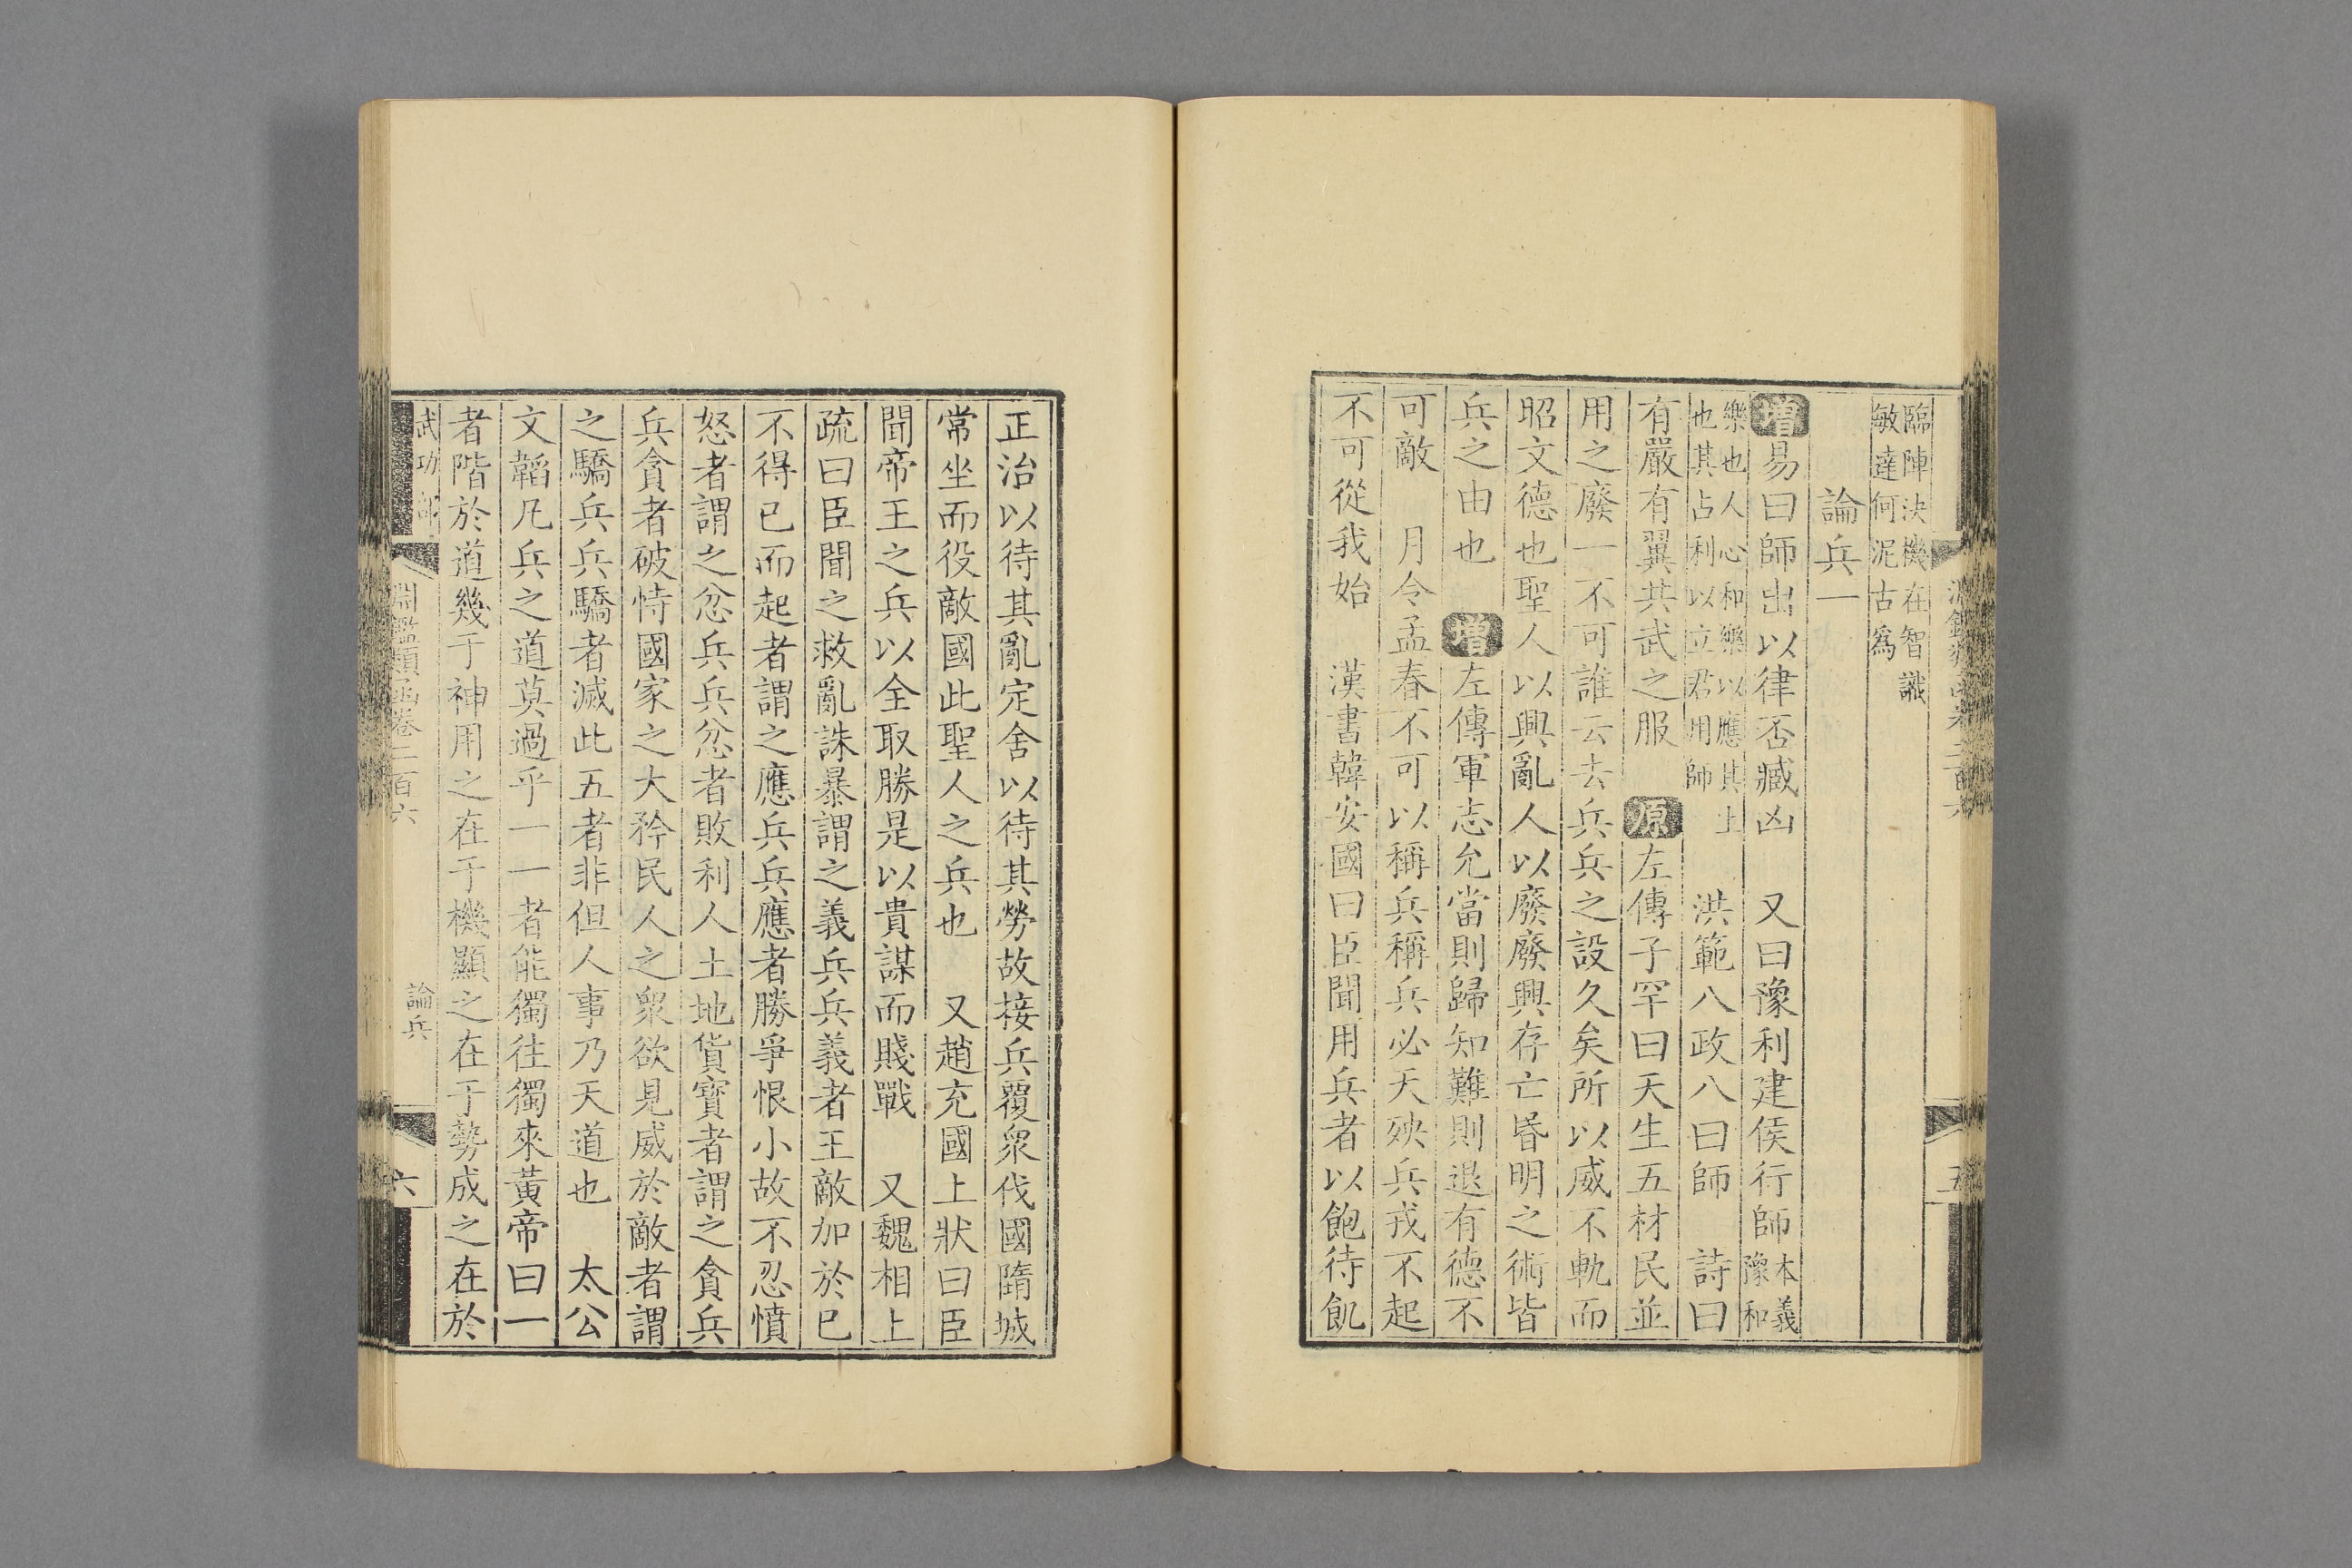 臨陣決機在智識
敏達何泥古爲
論兵一
增易曰師出以律否臧凶 又曰豫利建侯行師本義豫和
樂也人心和樂以應其上也其占利以立君用師 洪範八政八曰師 詩曰
有嚴有翼共武之服 原左傳子罕曰天生五材民並
用之廢一不可誰云去兵兵之設久矣所以威不軌而
昭文德也聖人以興亂人以廢廢興存亡昏明之術皆
兵之由也 增左傳軍志允當則歸知難則退有德不
可敵 月令孟春不可以稱兵稱兵必天殃兵戎不起
不可從我始 漢書韓安國曰臣聞用兵者以飽待飢
正治以待其亂定舍以待其勞故接兵覆衆伐國隋城
常坐而役敵國此聖人之兵也 又趙充國上狀曰臣
聞帝王之兵以全取勝是以貴謀而賤戰 又魏相上
疏曰臣聞之救亂誅暴謂之義兵兵義者王敵加於已
不得已而起者謂之應兵兵應者勝爭恨小故不忍憤
怒者謂之忿兵兵忿者敗利人土地貨寶者謂之貪兵
兵貪者破恃國家之大矜民人之衆欲見威於敵者謂
之驕兵兵驕者滅此五者非但人事乃天道也 太公
文韜凡兵之道莫過乎一一者能獨往獨來黃帝曰一
者階於道幾于神用之在于機顯之在于勢成之在於
武功部
淵鑑類函卷二百六
論兵
六